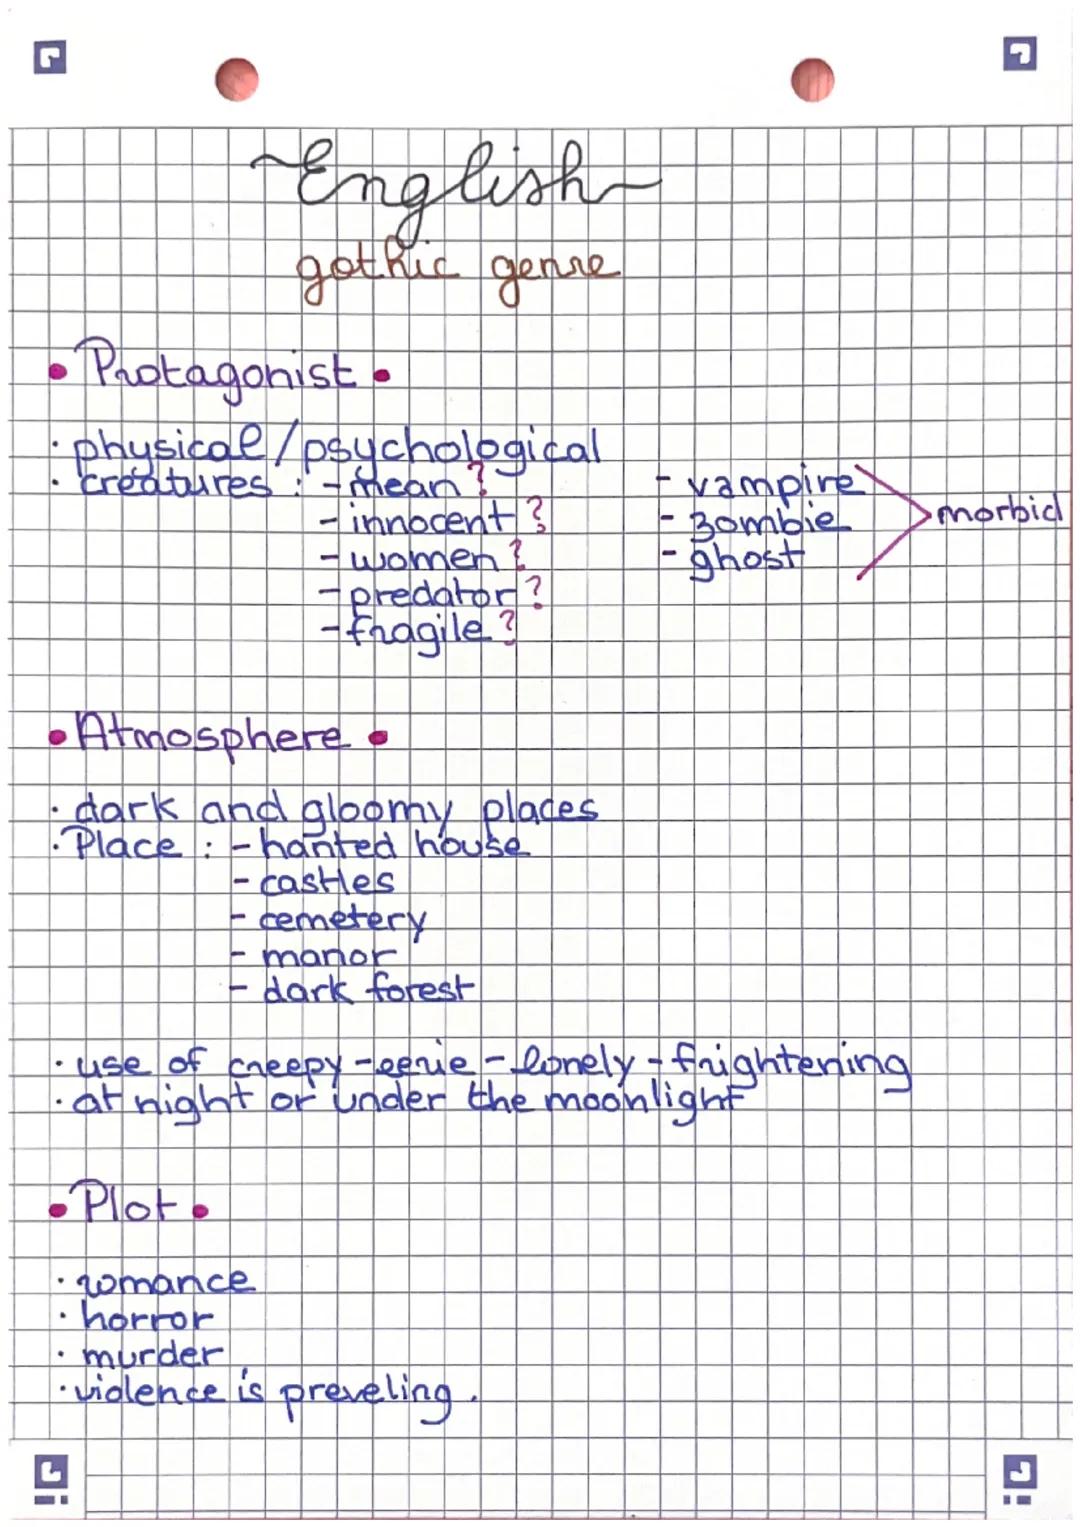 ~English~
gothic genre
• Protagonist •
· physical/psychological
· creatures : - mean ?
- innocent ?
- women ?
- predator ?
- fragile ?
- vampire
- zombie
- ghost
morbid
• Atmosphere •
· dark and gloomy places
· Place : - hanted house
- castles
- cemetery
- manor
- dark forest
· use of creepy - eerie - lonely - frightening
· at night or under the moonlight
• Plot •
· romance
· horror
· murder
· violence is preveling.